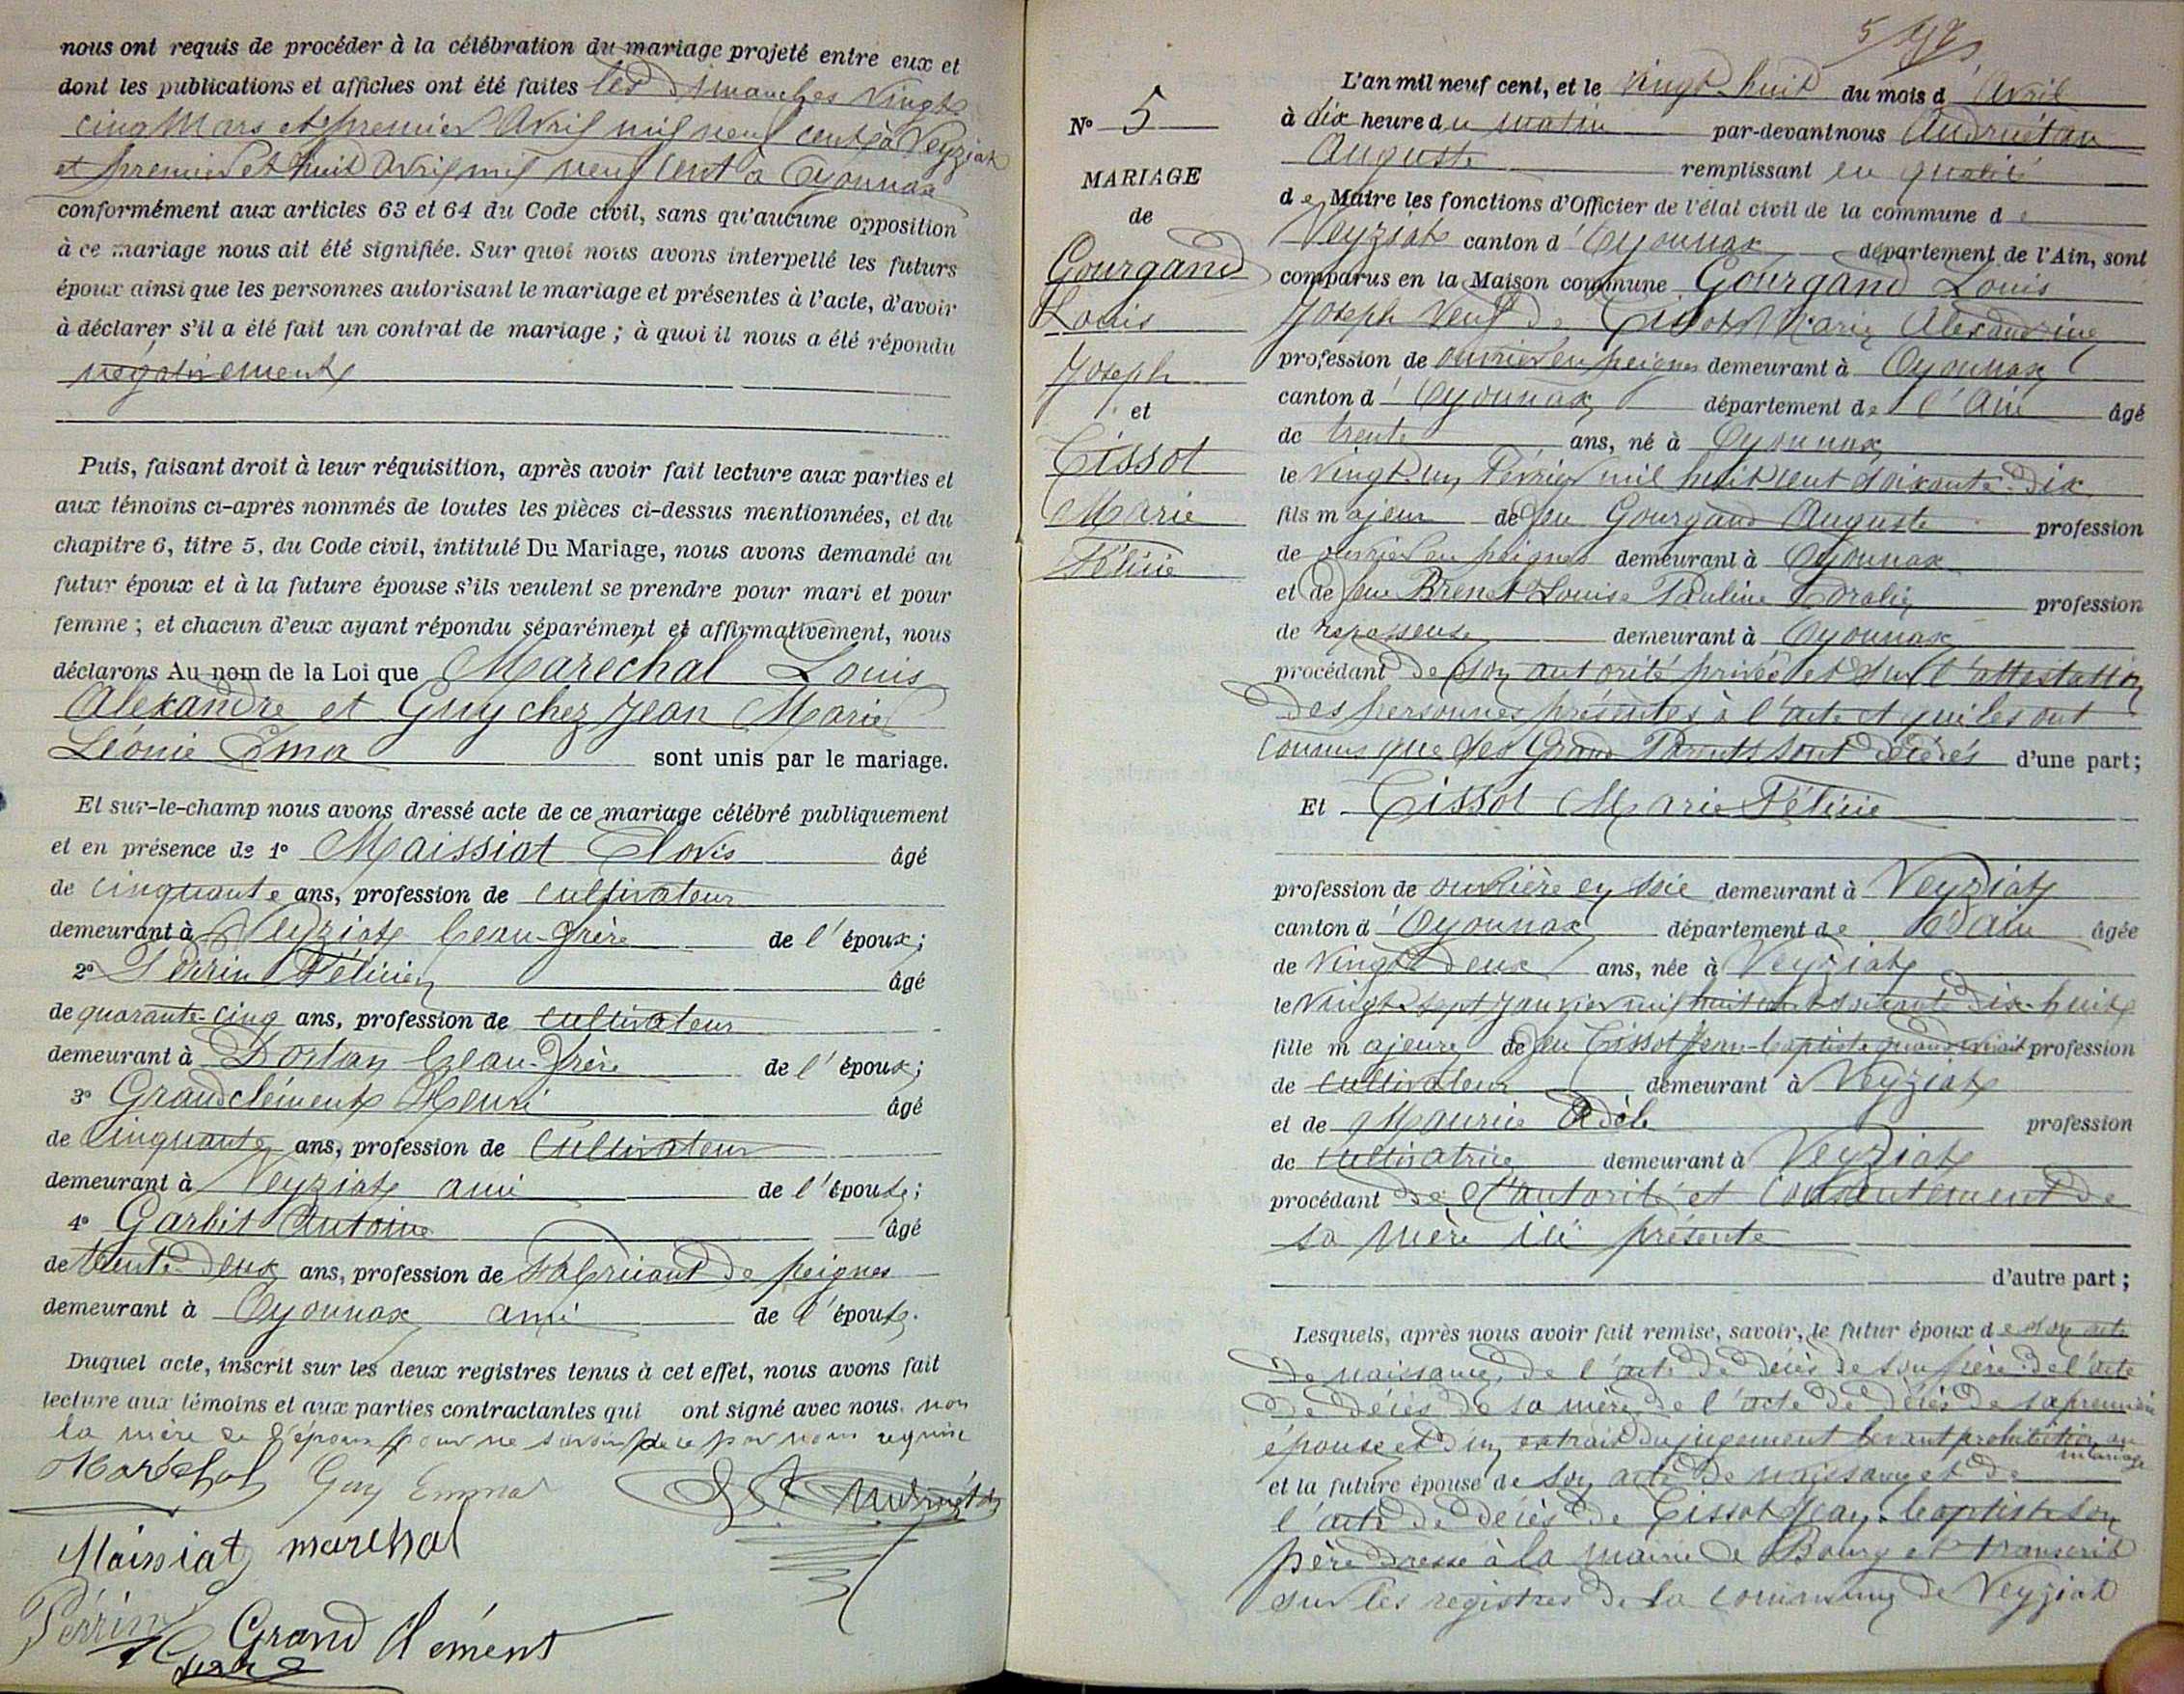 nous ont requis de procéder à la célébration du mariage projeté entre eux et
dont les publications et affiches ont été faites les dimanches vingt
cinq Mars et premier Avril mil neuf cent à Veyziat
et premier et huit Avril mil neuf cent à Oyonnax
conformément aux articles 63 et 64 du Code civil, sans qu'aucune opposition
à ce mariage nous ait été signifiée. Sur quoi nous avons interpellé les futurs
époux ainsi que les personnes autorisant le mariage et présentes à l'acte, d'avoir
à déclarer s'il a été fait un contrat de mariage ; à quoi il nous a été répondu
négativement
Puis, faisant droit à leur réquisition, après avoir fait lecture aux parties et
aux témoins ci-après nommés de toutes les pièces ci-dessus mentionnées, et du
chapitre 6, titre 5, du Code civil, intitulé Du Mariage, nous avons demandé au
futur époux et à la future épouse s'ils veulent se prendre pour mari et pour
femme ; et chacun d'eux ayant répondu séparément et affirmativement, nous
déclarons Au nom de la Loi que Maréchal Louis
Alexandre et Guy chez Jean Marie
Léonie Ema sont unis par le mariage.
Et sur-le-champ nous avons dressé acte de ce mariage célébré publiquement
et en présence de 1° Maissiat Clovis âgé
de cinquante ans, profession de cultivateur
demeurant à Veyziat beau-frère de l'époux ;
2° Perrin Félicien âgé
de quarante-cinq ans, profession de cultivateur
demeurant à Dortan beau-frère de l'époux ;
3° Grandclément Henri âgé
de cinquante ans, profession de cultivateur
demeurant à Veyziat ami de l'épouse ;
4° Garbit Antoine âgé
de trente-deux ans, profession de fabricant de peignes
demeurant à Oyonnax ami de l'épouse.
Duquel acte, inscrit sur les deux registres tenus à cet effet, nous avons fait
lecture aux témoins et aux parties contractantes qui ont signé avec nous. non
la mère de l'époux pour ne savoir de ce par nous requise
Maréchal Guy Emma
Maissiat marchal
Perrin Grand Clément
5
N° 5
MARIAGE
de
Gourgand
Louis
Joseph
et
Tissot
Marie
Félicie
L'an mil neuf cent, et le vingt-huit du mois d'Avril
à dix heure du matin par-devant nous Andruétan
Auguste remplissant en qualité
de Maire les fonctions d'Officier de l'état civil de la commune de
Veyziat canton d'Oyonnax département de l'Ain, sont
comparus en la Maison commune Gourgand Louis
Joseph veuf de Tissot Marie Alexandrine
profession de ouvrier en peignes demeurant à Oyonnax
canton d'Oyonnax département de l'Ain âgé
de trente ans, né à Oyonnax
le vingt-un Février mil huit cent soixante-dix
fils majeur de feu Gourgand Auguste profession
de ouvrier en peignes demeurant à Oyonnax
et de feue Brenet Louise Pauline Coralie profession
de repasseuse demeurant à Oyonnax
procédant de son autorité privée et sur l'attestation
des personnes présentes à l'acte et qui les ont
connus que ses Grand Parents sont décédés d'une part ;
Et Tissot Marie Félicie
profession de ouvrière en soie demeurant à Veyziat
canton d'Oyonnax département de l'Ain âgée
de vingt-deux ans, née à Veyziat
le vingt-sept Janvier mil huit cent soixante dix-huit
fille majeure de feu Tissot Jean-baptiste quand vivait profession
de cultivateur demeurant à Veyziat
et de Maurice Adèle profession
de cultivatrice demeurant à Veyziat
procédant de l'autorité et consentement de
sa mère ici présente
d'autre part ;
Lesquels, après nous avoir fait remise, savoir, le futur époux de son acte
de naissance, de l'acte de décès de son père de l'acte
de décès de sa mère de l'acte de décès de sa première
épouse et d'un extrait du jugement levant prohibition au
mariage
et la future épouse de son acte de naissance et de
l'acte de décès de Tissot Jean-baptiste son
père dressé à la mairie de Bourg et transcrit
sur les registres de la commune de Veyziat